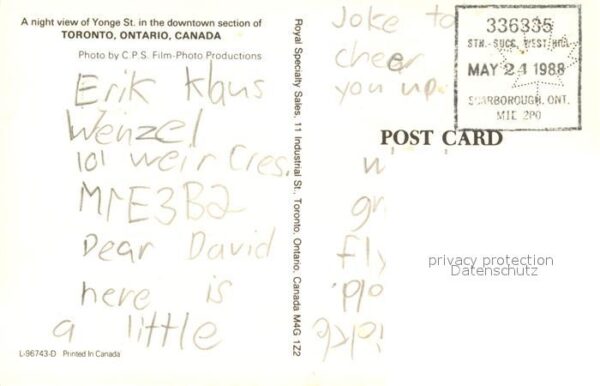 A night view of Yonge St. in the downtown section of
TORONTO, ONTARIO, CANADA
Photo by C.P.S. Film-Photo Productions
Erik Klaus
Wenzel
101 Weir Cres.
M1E3B2
Dear David
here is
a little
L-96743-D Printed In Canada
Royal Specialty Sales, 11 Industrial St., Toronto, Ontario, Canada M4G 1Z2
Joke to
cheer
you up
336335
STN.-SUCC. WEST HILL
MAY 24 1988
SCARBOROUGH, ONT.
M1E 2P0
POST CARD
w
gr
fly
privacy protection
Datenschutz